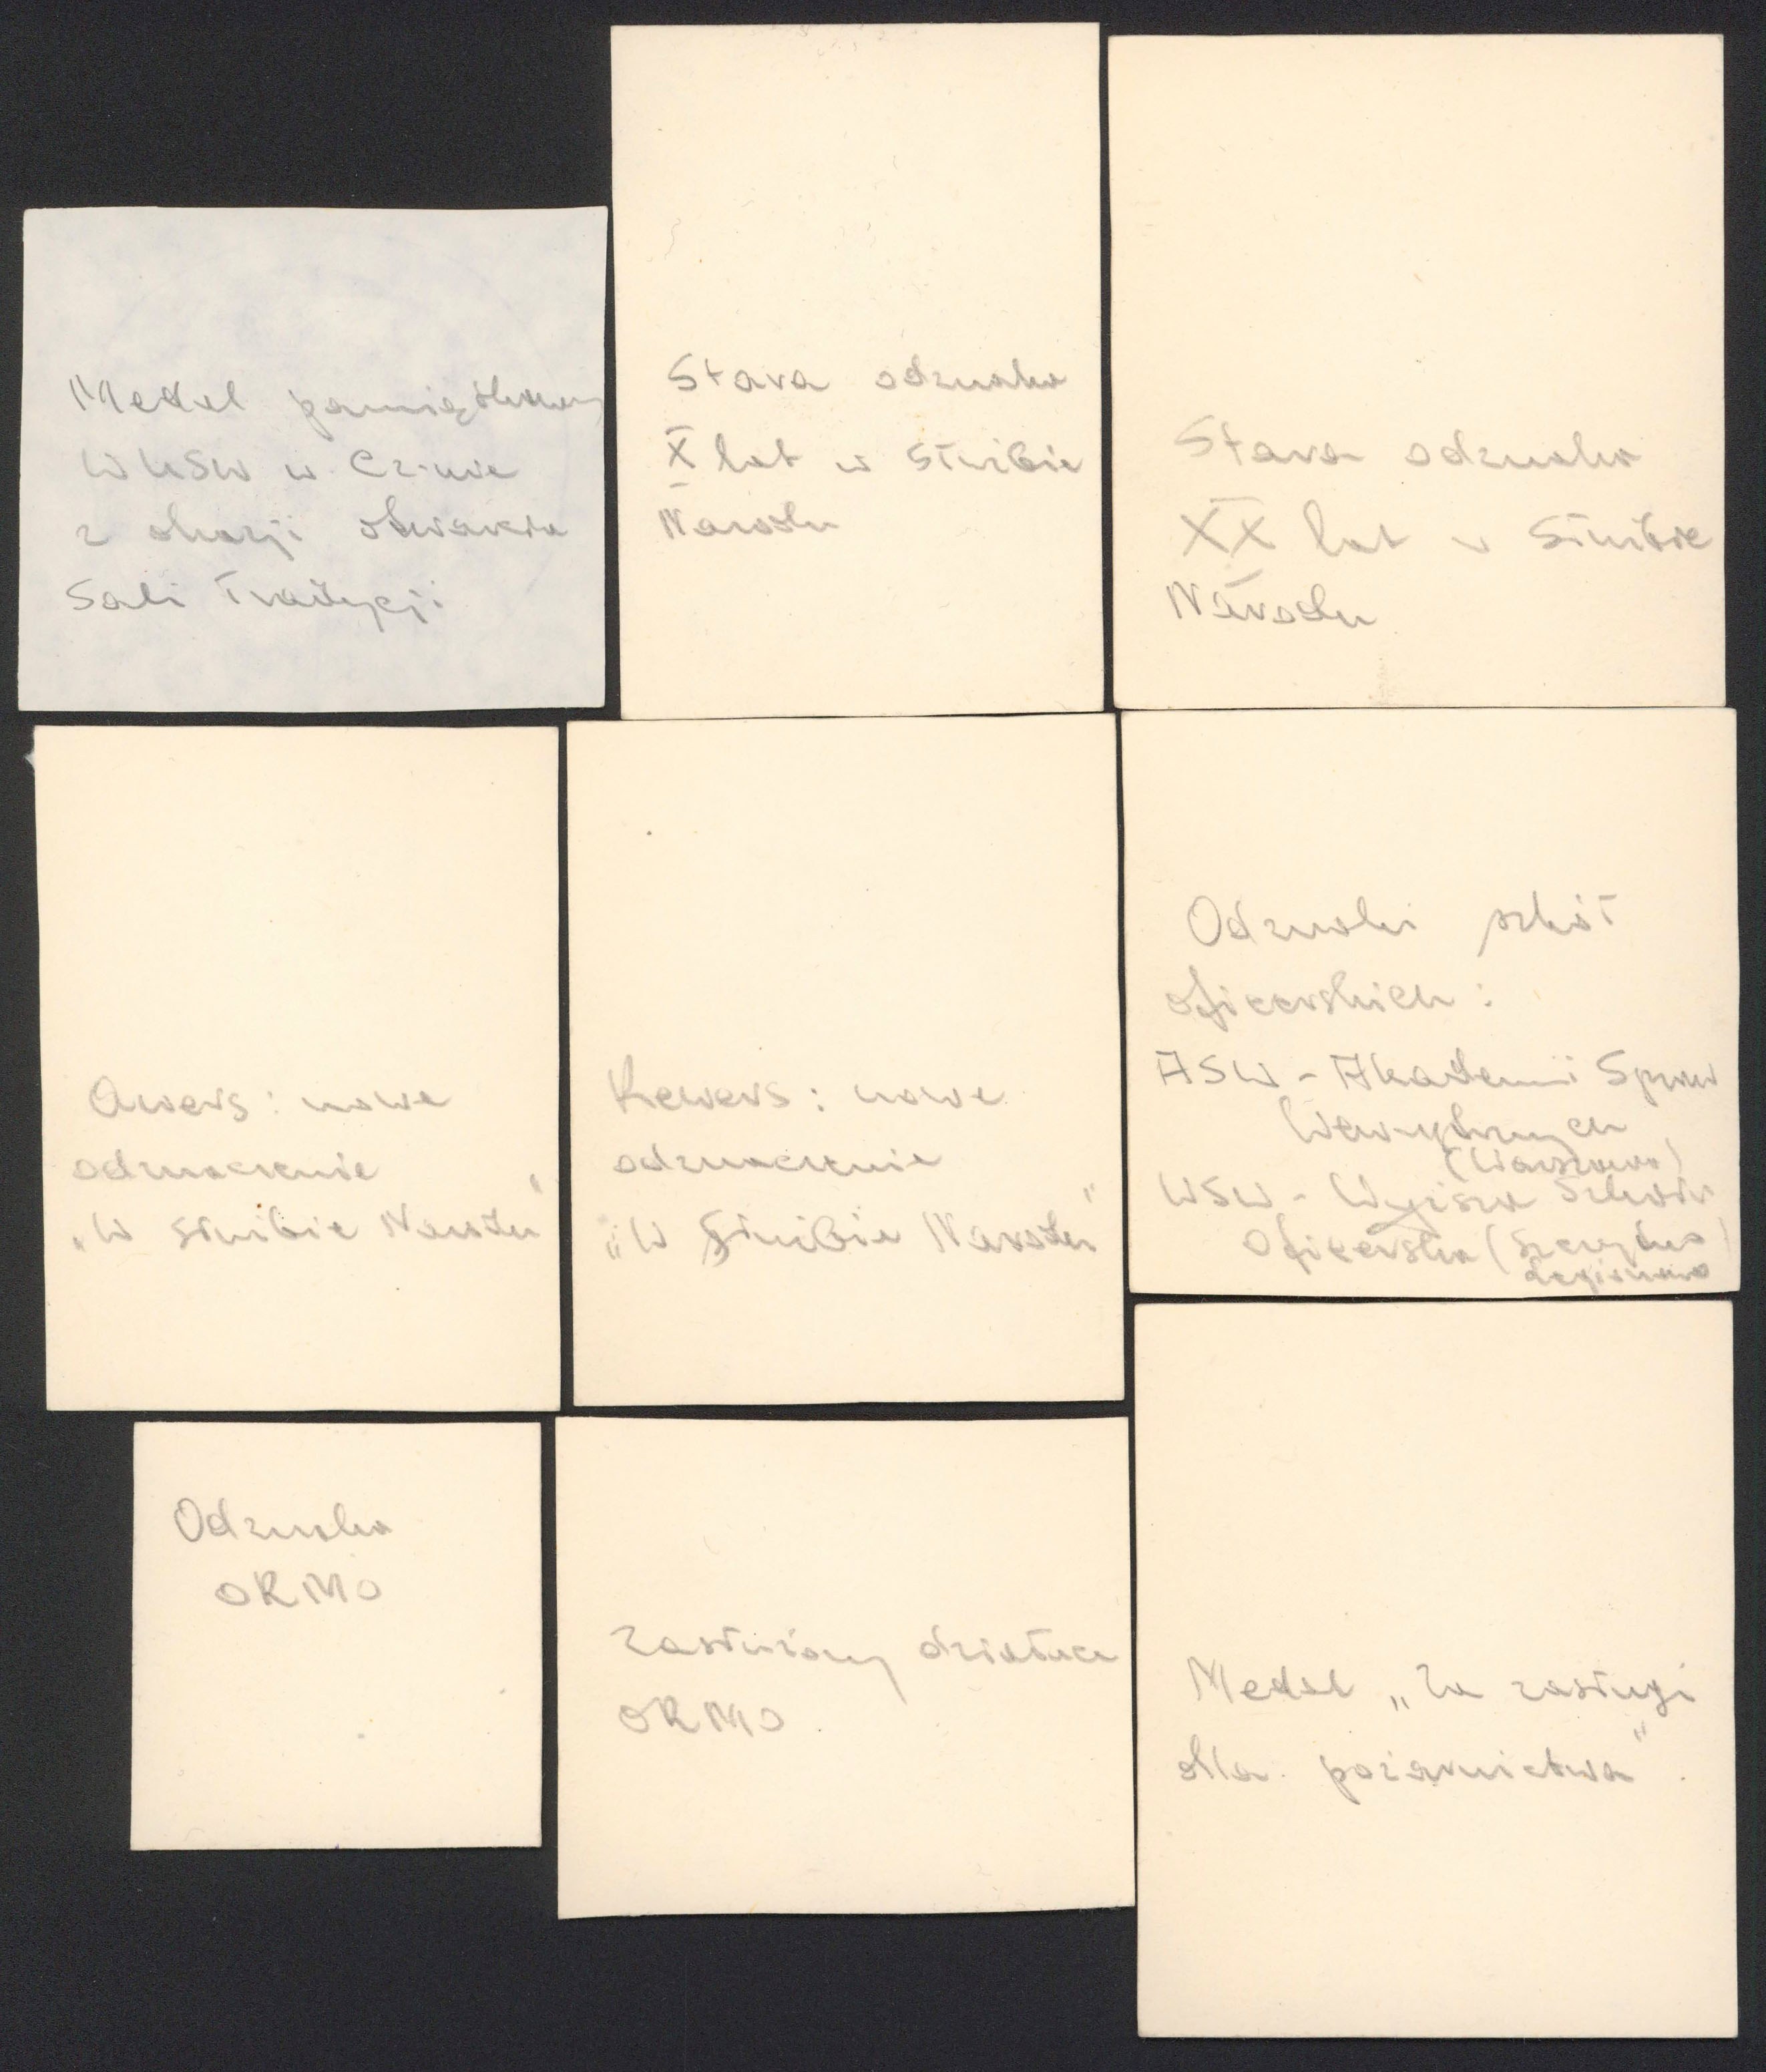 Medal pamiątkowy
WUSW w Cz-wie
z okazji otwarcia
Sali Tradycji
Stara odznaka
X lat w służbie
Narodu
Stara odznaka
XX lat w służbie
Narodu
Awers: nowe
odznaczenie
„W służbie Narodu"
Rewers: nowe
odznaczenie
„W służbie Narodu"
Odznaki szkół
oficerskich:
ASW - Akademii Spraw
Wewnętrznych
(Warszawa)
WSW - Wyższa Szkoła
Oficerska (Szczytno)
Legionowo
Odznaka
ORMO
Zasłużony działacz
ORMO.
Medal „Za zasługi
dla pożarnictwa".